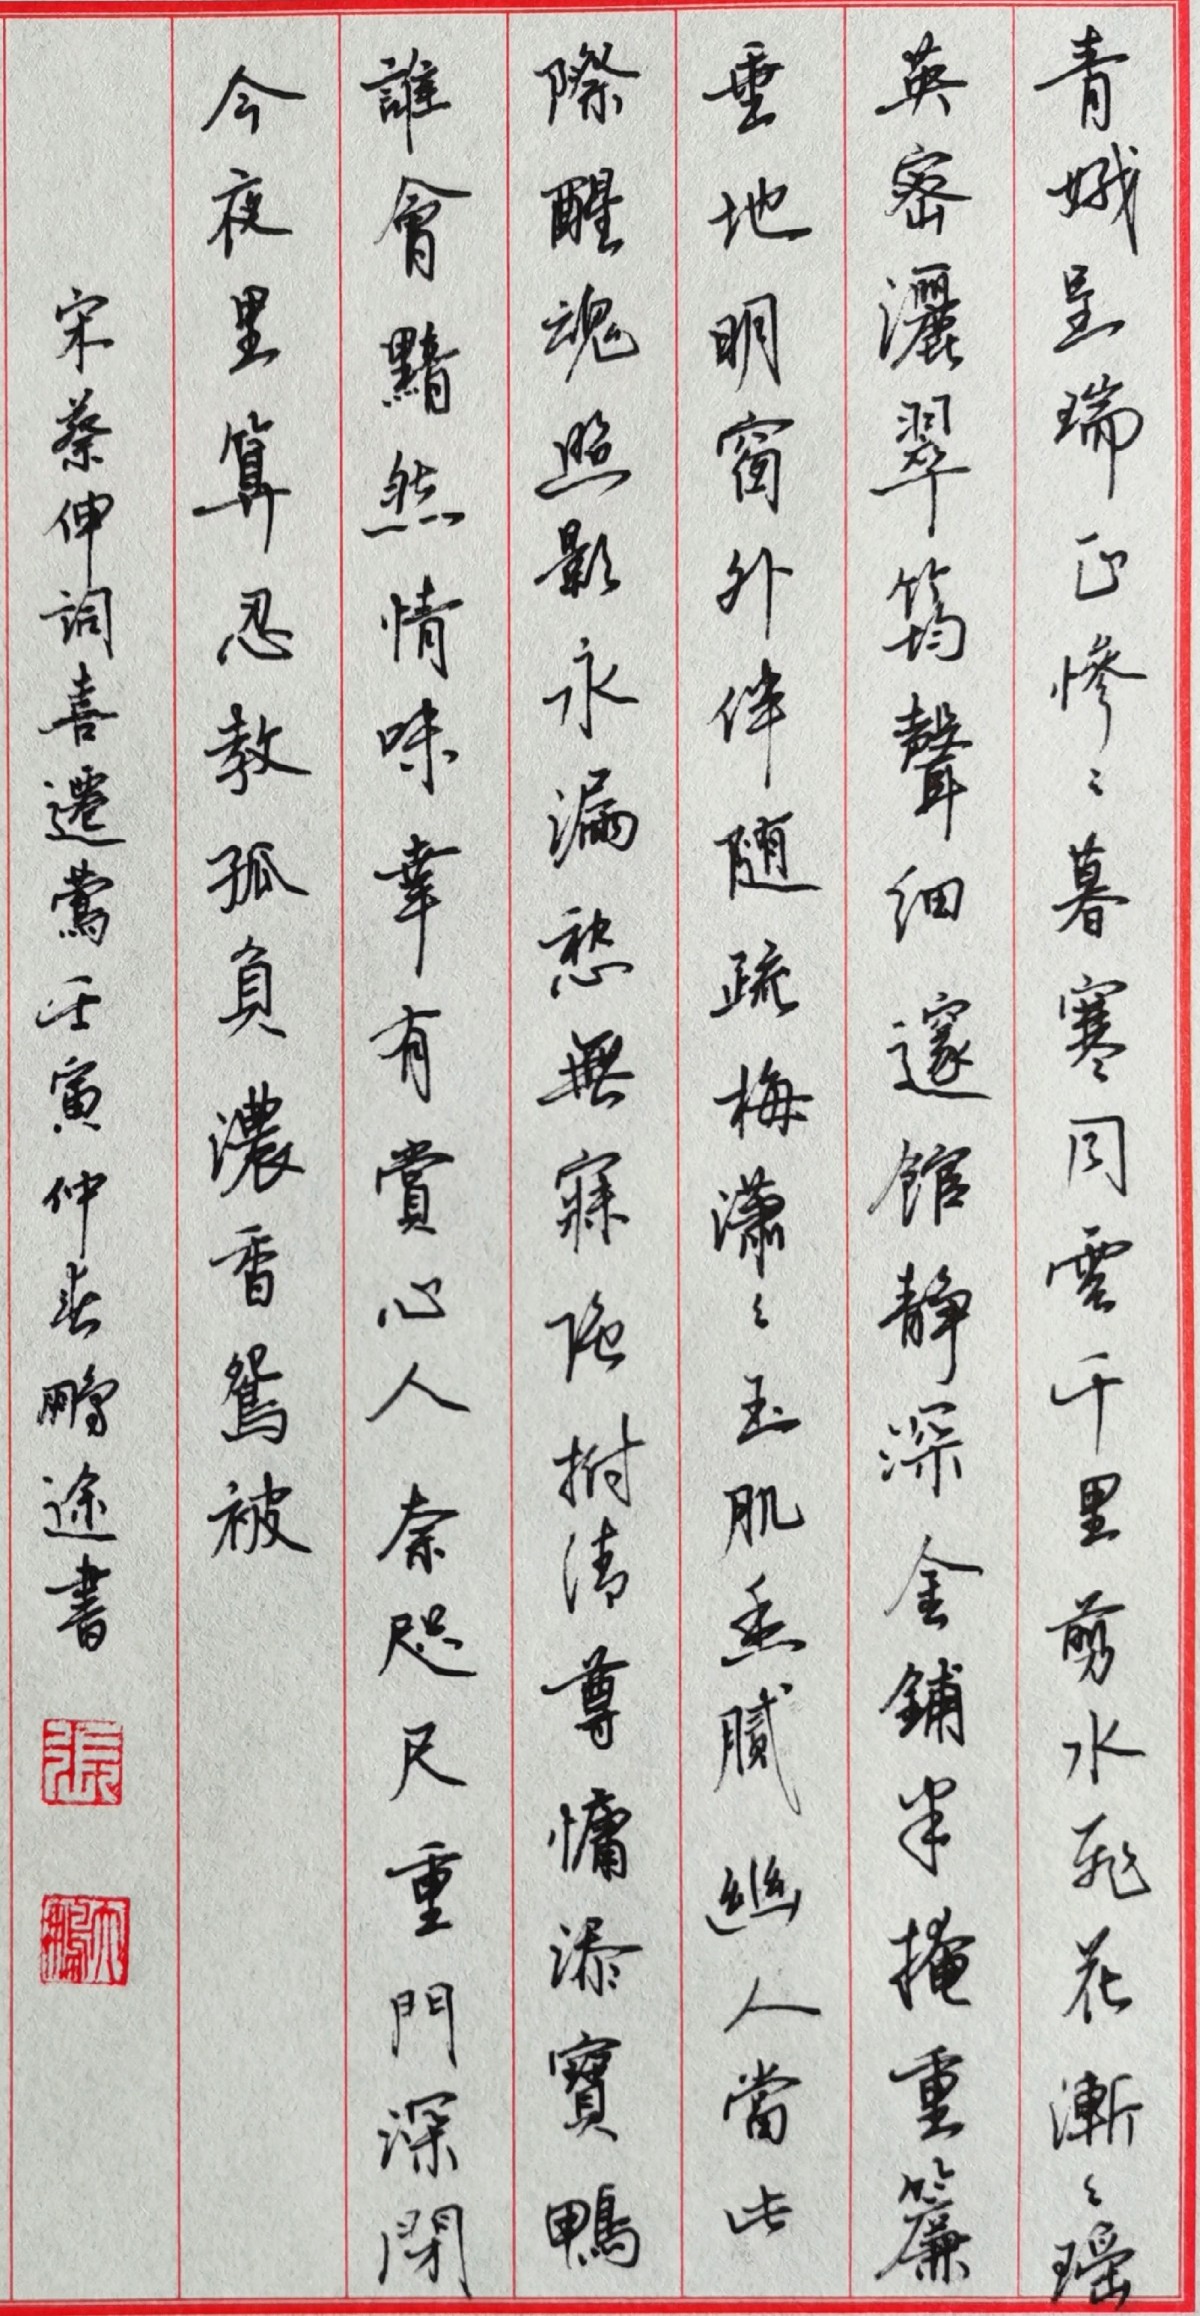 青娥呈瑞正慘〻暮寒同雲千里剪水飛花漸〻瑶
英密灑翠筠聲細邃館靜深金鋪半掩重簾
垂地明窗外伴随疏梅瀟〻玉肌香膩幽人當此
際醒魂照影永漏愁無寐強拊清尊慵添寶鴨
誰會黯然情味幸有賞心人奈咫尺重門深閉
今夜里算忍教孤負濃香鴛被
宋蔡伸詞喜遷鶯壬寅仲春鵬途書
張
大鵬